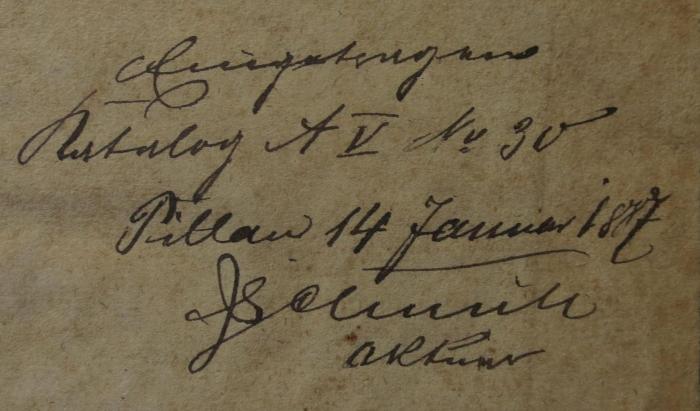 Eingetragen
Katalog A V No 30
Pillau 14 Januar 1887
JSchmidt
Aktuar